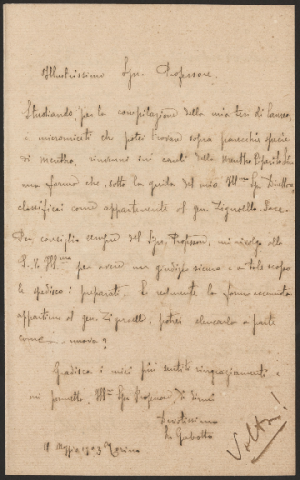 Illustrissimo Sgr. Professore.
Studiando, per la compilazione della mia tesi di laurea,
i micromiceti che potei trovare sopra parecchie specie
di mentha, rinvenni sui cauli della Mentha Piperita
una sforma che sotto la guida del mio Ill.mo Sgr. Direttore
classificai come appartenente al gen. Zignoella Sacc.
Per consiglio sempre del Sgr. Professore, mi rivolgo alla
S. V. Ill.ma per avere un giudizio sicuro e a tale scopo
le spedisco i preparati. E realmente la forma
appartiene al gen. Zignoella; potrei elencarla a parte
come nuova?
Gradisca i miei più sentiti ringraziamenti e
mi permetto, Ill.mo Sgr. Professore, di dirmi
Devotissimo
Maggio 1903 Torino
Volta!